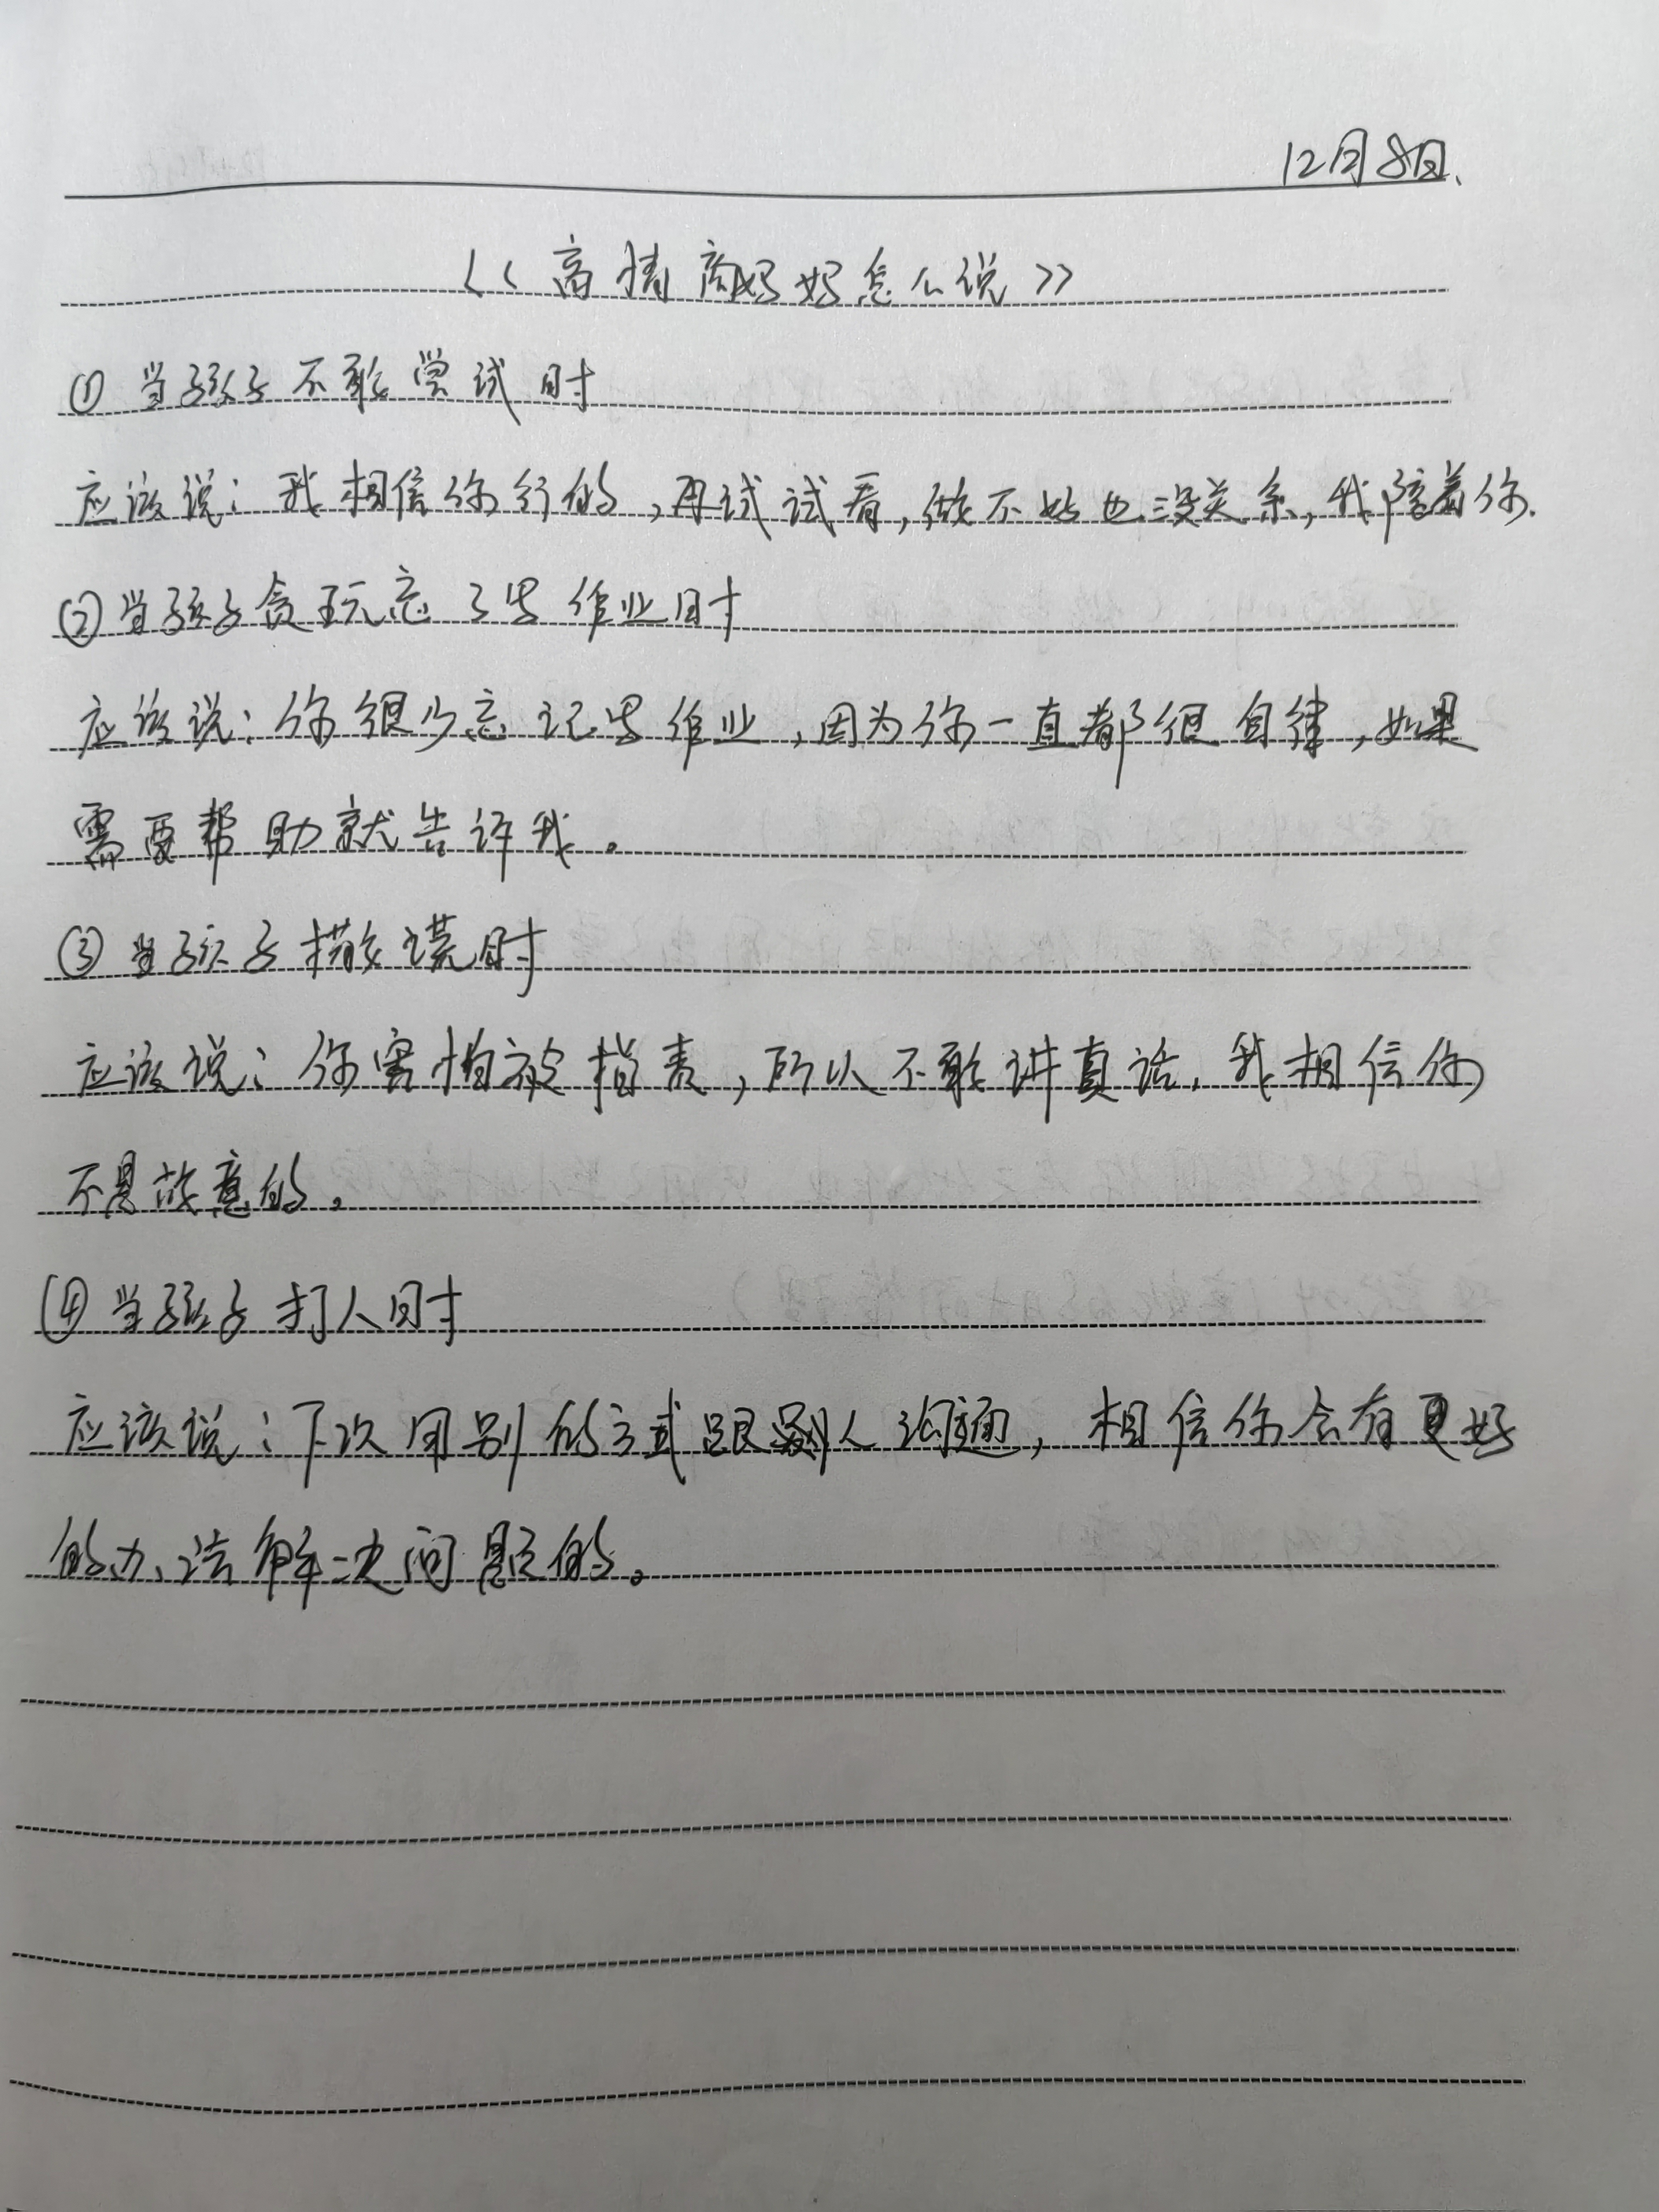 12月8日.
《高情商妈妈怎么说》
① 当孩子不敢尝试时
应该说：我相信你行的，再试试看，做不好也没关系，我陪着你.
② 当孩子贪玩忘了写作业时
应该说：你很少忘记写作业，因为你一直都很自律，如果
需要帮助就告诉我。
③ 当孩子撒谎时
应该说：你害怕被指责，所以不敢讲真话，我相信你
不是故意的。
④ 当孩子打人时
应该说：下次用别的方式跟别人沟通，相信你会有更好
的办法解决问题的。